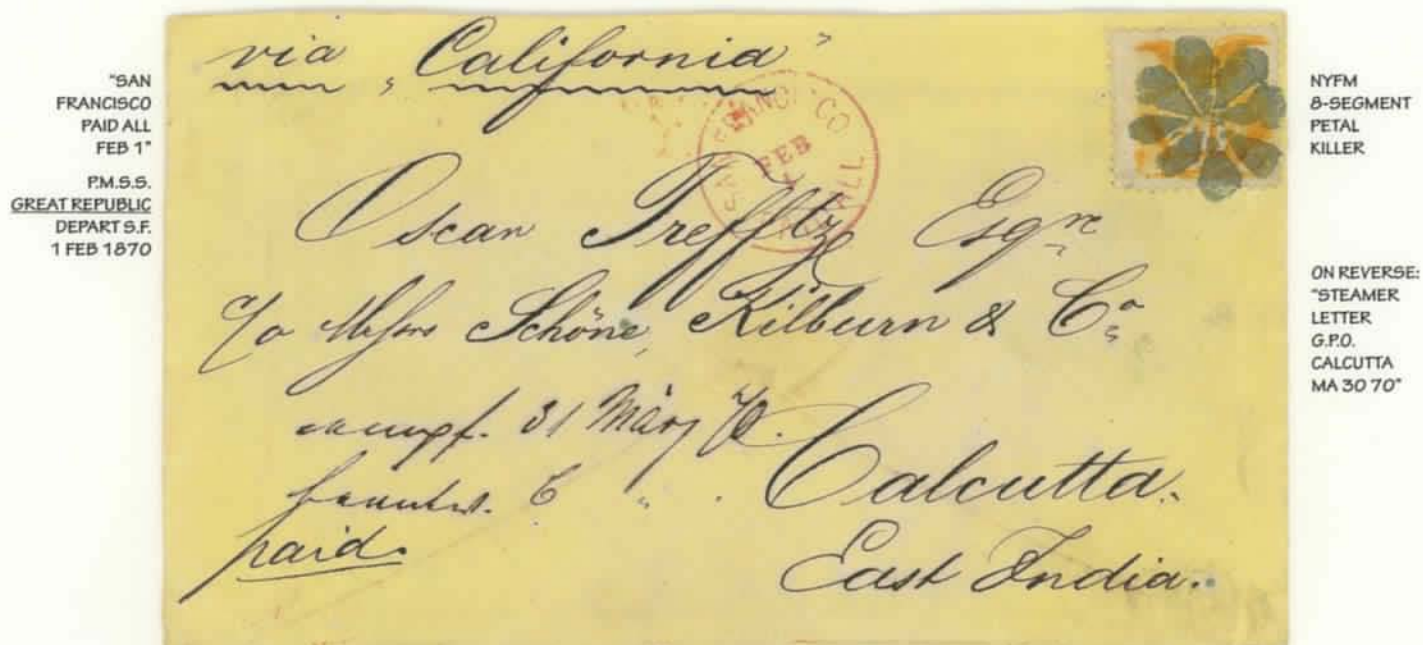 "SAN
FRANCISCO
PAID ALL
FEB 1"
P.M.S.S.
GREAT REPUBLIC
DEPART S.F.
1 FEB 1870
via "California"
SAN FRANCISCO
FEB
PAID ALL
Oscar Trefftz Esqre
c/o Messrs Schöne, Kilburn & Co
empf. 31 März 70.
6 " .
Calcutta.
paid.
East India.
NYFM
8-SEGMENT
PETAL
KILLER
ON REVERSE:
"STEAMER
LETTER
G.P.O.
CALCUTTA
MA 30 70"